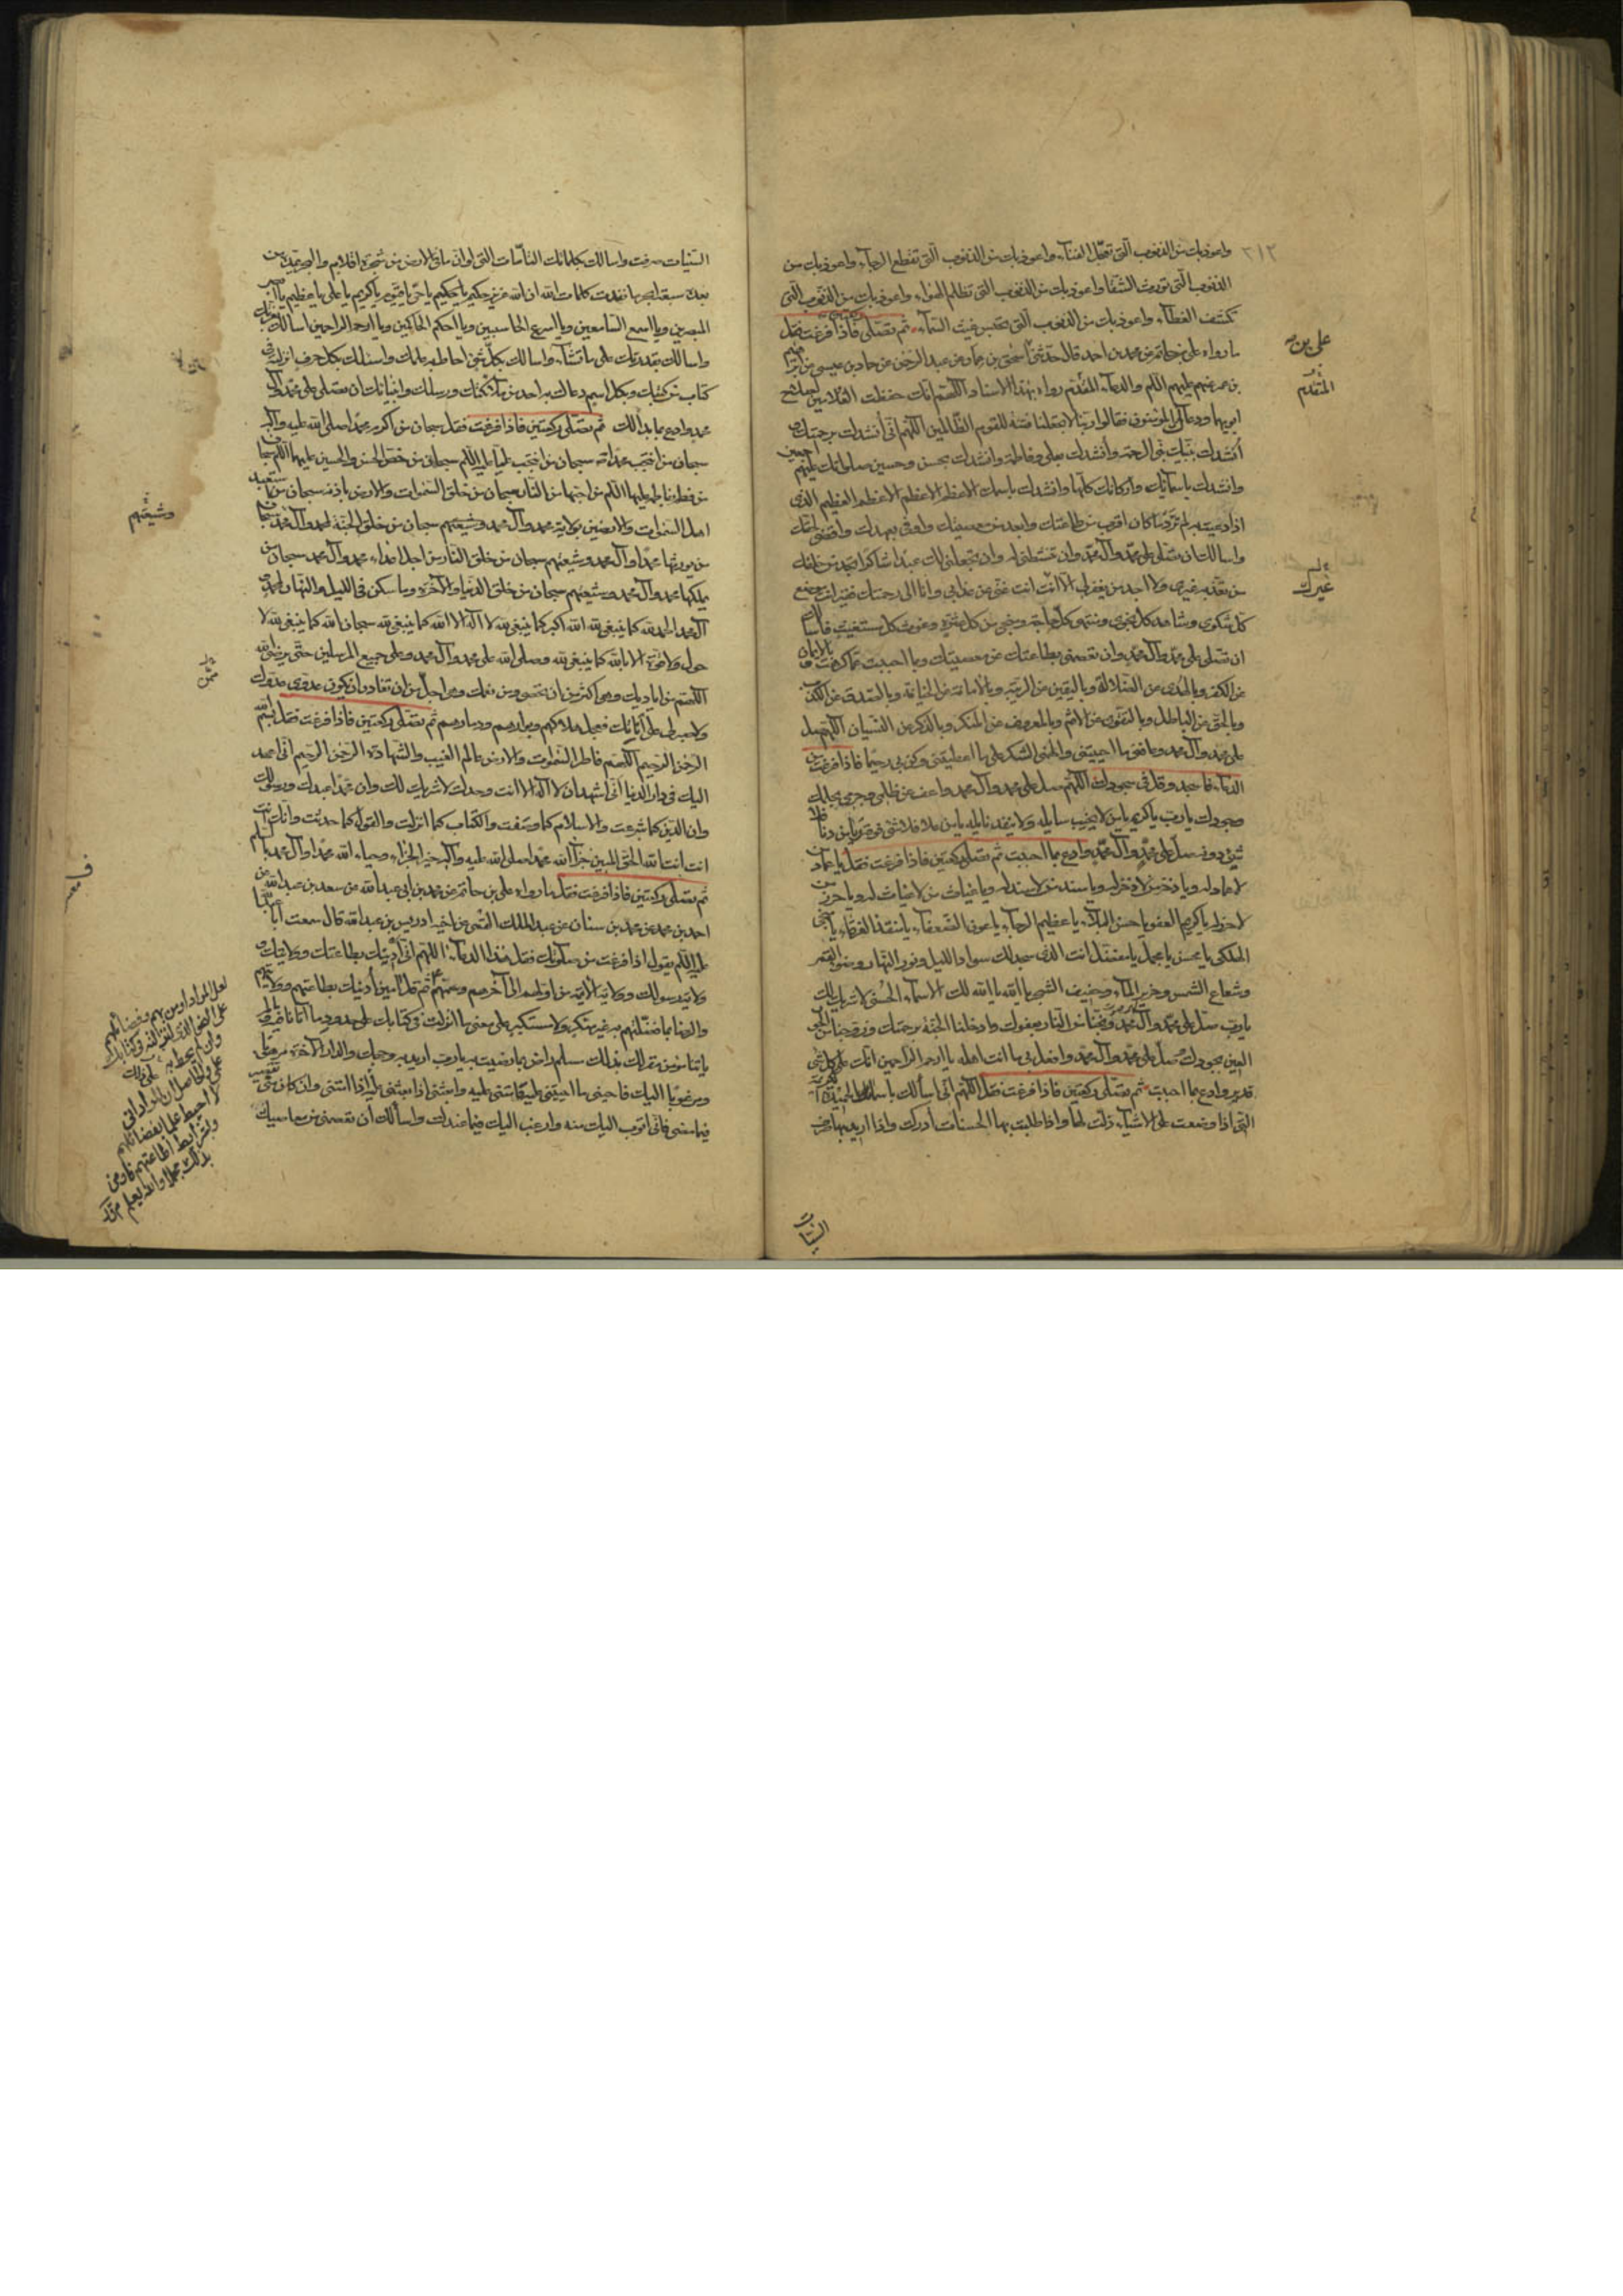 ٢١٢
واعوذ بك من الذنوب التى تعجّل الفنآء واعوذ بك من الذنوب التى تقطع الرجآء واعوذ بك من
الذنوب التى تورث الشقا واعوذ بك من الذنوب التى تظلم الهوآء واعوذ بك من الذنوب التى
تكشف الغطآء واعوذ بك من الذنوب التى تحبس غيث السمآء ثم تصلى ركعتين فاذا فرغت فقل
ما رواه على بن حاتم عن محمد بن احمد قال حدثنى اسحق بن عن عبد الرحمن عن حماد بن عيسى عن
بن عمر عنهم عليهم السلم والدعآء المقدم رواه بهذا الاسناد اللهم انك حفظت الغلامين لصلاح
ابويهما ودعاك المؤمنون فقالوا ربنا لا تجعلنا فتنة للقوم الظالمين اللهم انى أنشدك برحمتك و
أنشدك بنبيك نبى الرحمة وأنشدك بعلى وفاطمة وانشدك بحسن وحسين صلواتك عليهم اجمعين
وانشدك باسمآئك واركانك كلها وانشدك باسمك الاعظم الاعظم الاعظم العظيم الذى
اذا دعيت به لم تردّ ما كان اقرب من طاعتك وابعد من معصيتك واوفى بعهدك واقضى لحقك
واسالك ان تصلى على محمد وآل محمد وان تنشطنى له وان تجعلنى لك عبدا شاكرا تجد من خلقك
من تعذّبه غيرى ولا اجد من يغفر لى الا انت انت غنى عن عذابى وانا الى رحمتك فقير انت موضع
كل شكوى وشاهد كل نجوى ومنتهى كل حاجة ومنجى من كل عثرة وغوث كل مستغيث فاسالك
ان تصلى على محمد وآل محمد وان تعصمنى بطاعتك عن معصيتك وبما احببت عما كرهت وبالايمان
عن الكفر وبالهدى عن الضلالة وباليقين عن الريبة وبالامانة عن الخيانة وبالصدق عن الكذب
وبالحق عن الباطل وبالتقوى عن الاثم وبالمعروف عن المنكر وبالذكر عن النسيان اللهم صل
على محمد وآل محمد وعافنى ما احييتنى والهمنى الشكر على ما اعطيتنى وكن بى رحيما فاذا فرغت من
الدعآء فاسجد وقل فى سجودك اللهم صل على محمد وآل محمد واعف عن ظلمى وجرمى بحلمك
وجودك يا رب يا كريم يا من لا يخيب سايله ولا ينفد نايله يا من علا فلا شئ فوقه ويا من دنا فلا
شئ دونه صل على محمد وآل محمد وادع بما احببت ثم تصلى ركعتين فاذا فرغت فقل يا عماد من
لا عماد له ويا ذخر من لا ذخر له ويا سند من لا سند له ويا غياث من لا غياث له ويا حرز من
لا حرز له يا كريم العفو يا حسن البلآء يا عظيم الرجآء يا عون الضعفآء يا منقذ الغرقآء يا منجى
الهلكى يا محسن يا مجمل يا مفضل انت الذى سجد لك سواد الليل ونور النهار وضوء القمر
وشعاع الشمس وخرير المآء وحفيف الشجر يا الله يا الله لك الاسمآء الحسنى لا شريك لك
يا رب صل على محمد وآل محمد ونجنا من النار بعفوك وادخلنا الجنة برحمتك وزوجنا من الحور
العين بجودك وصل على محمد وآل محمد وافعل بى ما انت اهله يا ارحم الراحمين انك على كل شئ
قدير وادع بما احببت ثم تصلى ركعتين فاذا فرغت فقل اللهم انى اسالك باسمائك الحميدة الكريمة
التى اذا وضعت على الاشيآء ذلت لها واذا طلبت بها الحسنات أدركت واذا اريد بها صرف
السيئات
على بن
المتقدم
غيرك
السيئات صرفت واسالك بكلماتك التامات التى لو ان ما فى الارض من شجرة اقلام والبحر يمده من
بعده سبعة ابحر ما نفدت كلمات الله ان الله عزيز حكيم يا حكيم يا حى يا قيوم يا كريم يا على يا عظيم يا ابصر
المبصرين ويا اسمع السامعين ويا اسرع الحاسبين ويا احكم الحاكمين ويا ارحم الراحمين اسالك بعزتك
واسالك بقدرتك على ما تشآء واسالك بكل شئ احاط به علمك واسالك بكل حرف انزلته فى
كتاب من كتبك وبكل اسم دعاك به احد من ملآئكتك ورسلك وانبيائك ان تصلى على محمد وآل
محمد وادع بما بدا لك ثم تصلى ركعتين فاذا فرغت فقل سبحان من اكرم محمدا صلى الله عليه وآله
سبحان من انتجب محمدا سبحان من انتجب عليا عليه السلم سبحان من خص الحسن والحسين عليهما السلم سبحان
من فطم بفاطمة عليها السلم من احبها من النار سبحان من خلق السموات والارض باذنه سبحان من استعبد
اهل السموات والارضين بولاية محمد وآل محمد وشيعتهم سبحان من خلق الجنة لمحمد وآل محمد سبحان
من يورثها محمدا وآل محمد وشيعتهم سبحان من خلق النار من اجل اعدآء محمد وآل محمد سبحان من
يملكها محمدا وآل محمد وشيعتهم سبحان من خلق الدنيا والآخرة وما سكن فى الليل والنهار لمحمد و
آل محمد الحمد لله كما ينبغى لله الله اكبر كما ينبغى لله لا اله الا الله كما ينبغى لله سبحان الله كما ينبغى لله لا
حول ولا قوة الا بالله كما ينبغى لله وصلى الله على محمد وآل محمد وعلى جميع المرسلين حتى يرضى الله
اللهم من اياديك وهى اكثر من ان تحصى ومن نعمك وهى اجل من ان تغادر ان يكون عدوى عدوك
ولا صبر لى على أناتك فعجل هلاكهم وبوارهم ودمارهم ثم تصلى ركعتين فاذا فرغت فقل بسم الله
الرحمن الرحيم اللهم فاطر السموات والارض عالم الغيب والشهادة الرحمن الرحيم انى اعهد
اليك فى دار الدنيا انى اشهد ان لا اله الا انت وحدك لا شريك لك وان محمدا عبدك ورسولك
وان الدين كما شرعت والاسلام كما وصفت والكتاب كما انزلت والقول كما حدثت وانك انت
انت انت الله الحق المبين جزآ الله محمدا صلى الله عليه وآله خير الجزآء وحيا الله محمدا وآل محمد بالسلم
ثم تصلى ركعتين فاذا فرغت فقل ما رواه على بن حاتم عن محمد بن ابى عبد الله عن سعد بن عبد الله عن
احمد بن محمد عن محمد بن سنان عن عبد الملك القمى عن اخيه ادريس بن عبد الله قال سمعت ابا عبد الله
عليه السلم يقول اذا فرغت من صلوتك فقل هذا الدعآء اللهم انى أدينك بطاعتك وولايتك و
ولاية رسولك وولاية الائمة من اولهم الى آخرهم وسمهم ثم قل آمين أدينك بطاعتهم وولايتهم
والرضا بما فضلتهم به غير متكبر ولا مستكبر على معنى ما انزلت فى كتابك على حدود ما اتانا فيه وما لم
ياتنا مؤمن مقر لك بذلك مسلم راض بما رضيت به يا رب اريد به وجهك والدار الآخرة مرهوبا
ومرغوبا اليك فاحينى ما احييتنى عليه وامتنى اذا امتنى عليه وابعثنى اذا بعثتنى على ذلك وان كان منى تقصير
فيما مضى فانى اتوب اليك منه وارغب اليك فيما عندك واسألك أن تعصمنى من معاصيك
وشيعتهم